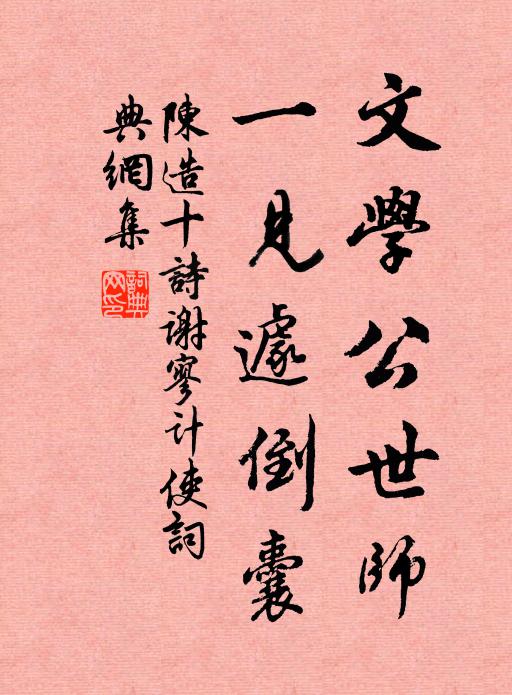 文學公世師
一見遽倒囊
陳造十詩謝寥计使詞
典網集
詞典網印